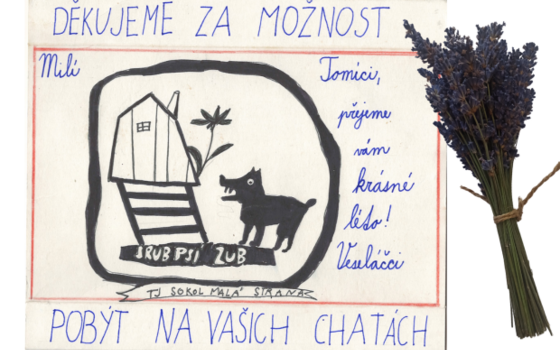 DĚKUJEME ZA MOŽNOST
Milí Tomíci,
přejeme
vám
krásné
léto!
Veseláčci
SRUB PSÍ ZUB
TJ SOKOL MALÁ STRANA
POBÝT NA VAŠICH CHATÁCH